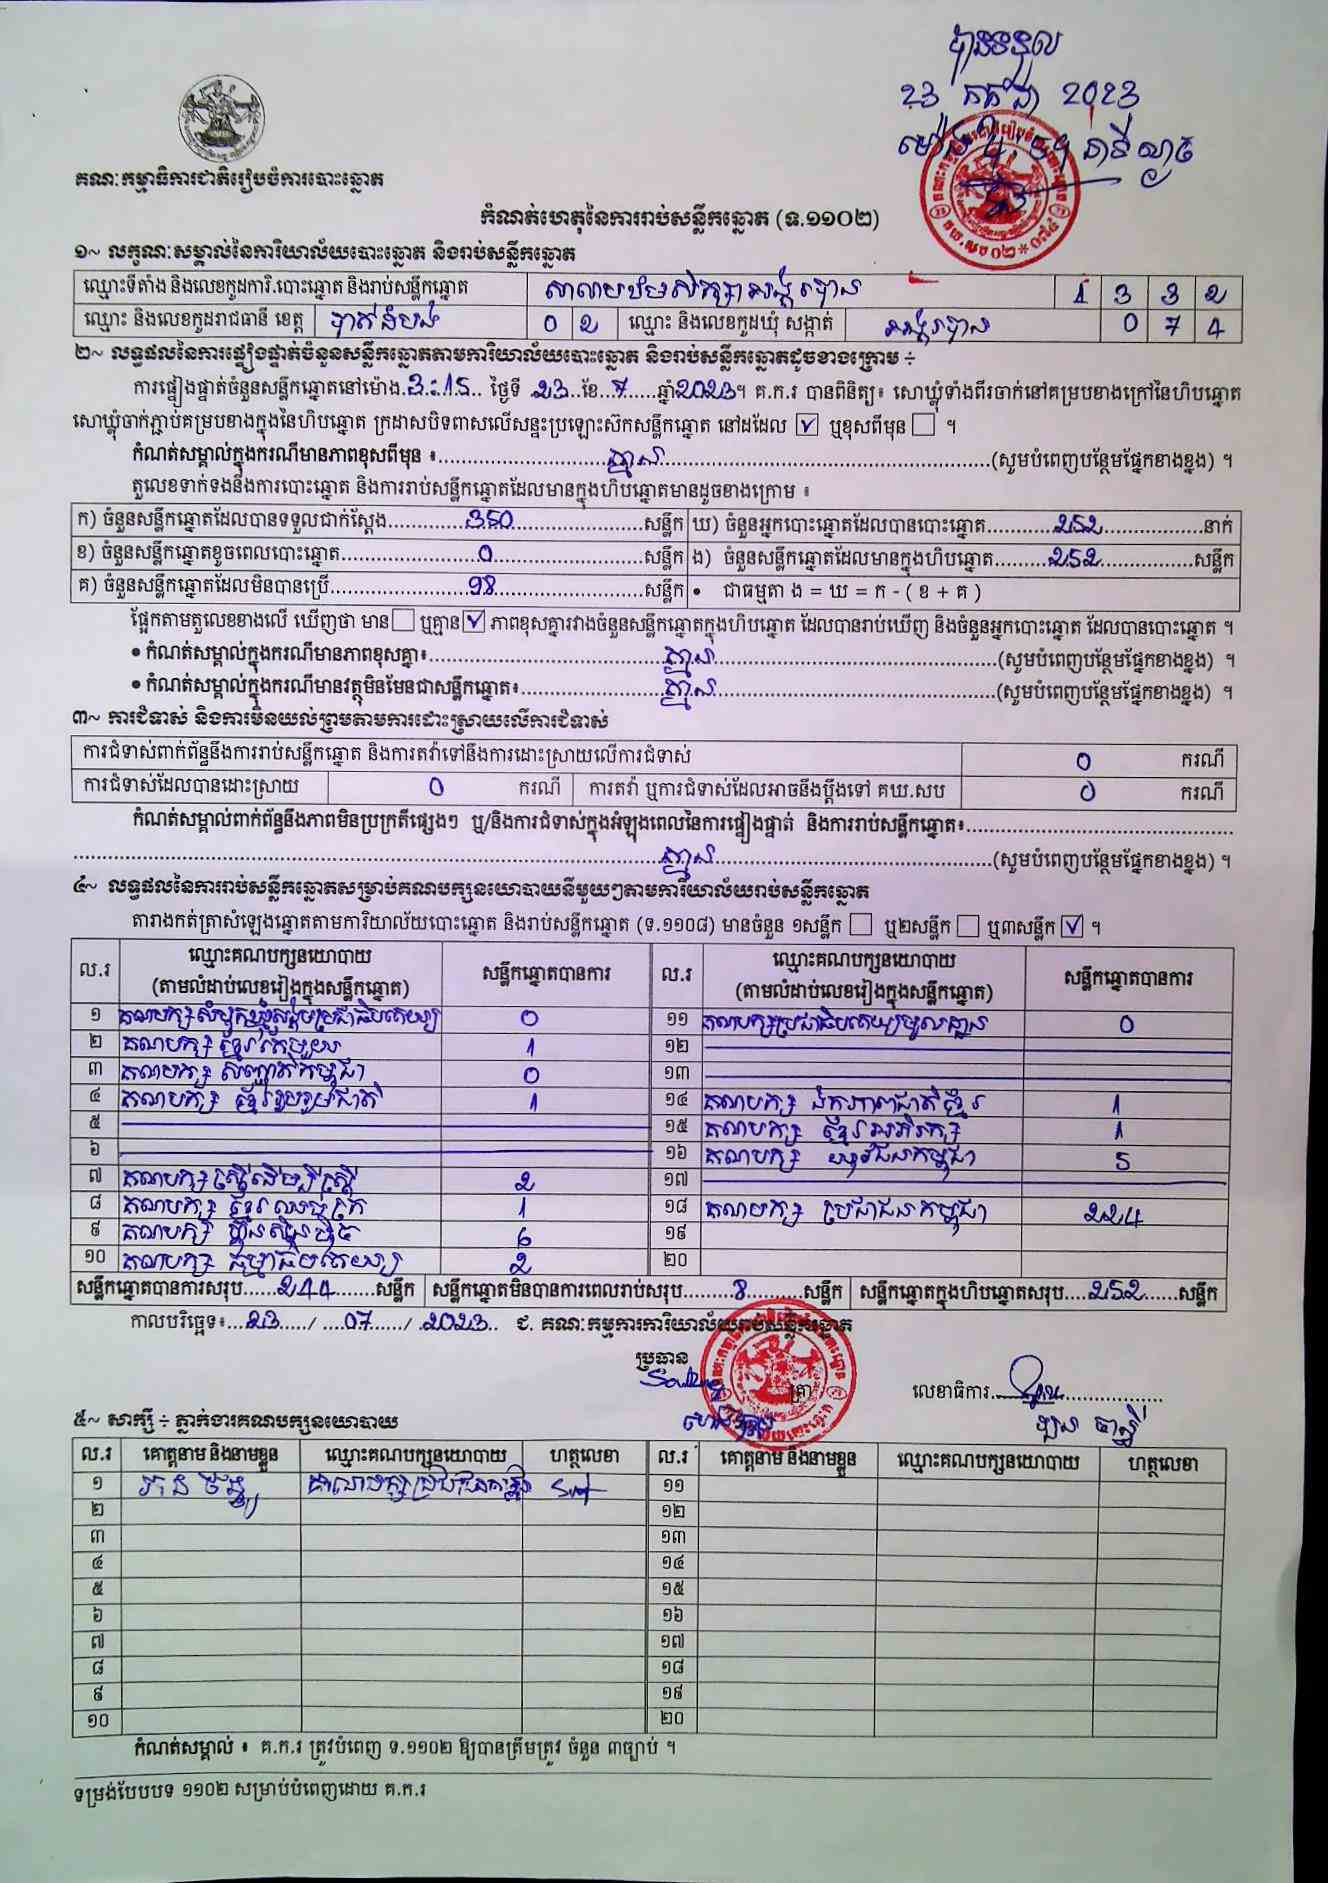 បានទទួល
23 កក្កដា 2023
គណៈកម្មាធិការជាតិរៀបចំការបោះឆ្នោត
កំណត់ហេតុនៃការរាប់សន្លឹកឆ្នោត (ទ.១១០២)
១~ លក្ខណៈសម្គាល់នៃការិយាល័យបោះឆ្នោត និងរាប់សន្លឹកឆ្នោត
ឈ្មោះទីតាំង និងលេខកូដការិ.បោះឆ្នោត និងរាប់សន្លឹកឆ្នោត សាលាបឋមសិក្សាអង្គរបាន 1 3 3 2
ឈ្មោះ និងលេខកូដរាជធានី ខេត្ត បាត់ដំបង 0 2 ឈ្មោះ និងលេខកូដឃុំ សង្កាត់ អង្គរបាន 0 7 4
២~ លទ្ធផលនៃការផ្ទៀងផ្ទាត់ចំនួនសន្លឹកឆ្នោតតាមការិយាល័យបោះឆ្នោត និងរាប់សន្លឹកឆ្នោតដូចខាងក្រោម ÷
ការផ្ទៀងផ្ទាត់ចំនួនសន្លឹកឆ្នោតនៅម៉ោង 3:15 ថ្ងៃទី 23 ខែ 7 ឆ្នាំ 2023។ គ.ក.រ បានពិនិត្យ៖ សោឃ្លុំទាំងពីរចាក់នៅគម្របខាងក្រៅនៃហិបឆ្នោត
សោឃ្លុំចាក់ភ្ជាប់គម្របខាងក្នុងនៃហិបឆ្នោត ក្រដាសបិទពាសលើសន្ទះប្រឡោះស៊កសន្លឹកឆ្នោត នៅដដែល ☑ ឬខុសពីមុន ☐ ។
កំណត់សម្គាល់ក្នុងករណីមានភាពខុសពីមុន ៖ គ្មាន (សូមបំពេញបន្ថែមផ្នែកខាងខ្នង) ។
តួលេខទាក់ទងនឹងការបោះឆ្នោត និងការរាប់សន្លឹកឆ្នោតដែលមានក្នុងហិបឆ្នោតមានដូចខាងក្រោម ៖
ក) ចំនួនសន្លឹកឆ្នោតដែលបានទទួលជាក់ស្តែង 350 សន្លឹក ឃ) ចំនួនអ្នកបោះឆ្នោតដែលបានបោះឆ្នោត 252 នាក់
ខ) ចំនួនសន្លឹកឆ្នោតខូចពេលបោះឆ្នោត 0 សន្លឹក ង) ចំនួនសន្លឹកឆ្នោតដែលមានក្នុងហិបឆ្នោត 252 សន្លឹក
គ) ចំនួនសន្លឹកឆ្នោតដែលមិនបានប្រើ 98 សន្លឹក • ជាធម្មតា ង = ឃ = ក - ( ខ + គ )
ផ្អែកតាមតួលេខខាងលើ ឃើញថា មាន ☐ ឬគ្មាន ☑ ភាពខុសគ្នារវាងចំនួនសន្លឹកឆ្នោតក្នុងហិបឆ្នោត ដែលបានរាប់ឃើញ និងចំនួនអ្នកបោះឆ្នោត ដែលបានបោះឆ្នោត ។
• កំណត់សម្គាល់ក្នុងករណីមានភាពខុសគ្នា៖ គ្មាន (សូមបំពេញបន្ថែមផ្នែកខាងខ្នង) ។
• កំណត់សម្គាល់ក្នុងករណីមានវត្ថុមិនមែនជាសន្លឹកឆ្នោត៖ គ្មាន (សូមបំពេញបន្ថែមផ្នែកខាងខ្នង) ។
៣~ ការជំទាស់ និងការមិនយល់ព្រមតាមការដោះស្រាយលើការជំទាស់
ការជំទាស់ពាក់ព័ន្ធនឹងការរាប់សន្លឹកឆ្នោត និងការតវ៉ាទៅនឹងការដោះស្រាយលើការជំទាស់ 0 ករណី
ការជំទាស់ដែលបានដោះស្រាយ 0 ករណី ការតវ៉ា ឬការជំទាស់ដែលអាចនឹងប្តឹងទៅ គឃ.សប 0 ករណី
កំណត់សម្គាល់ពាក់ព័ន្ធនឹងភាពមិនប្រក្រតីផ្សេងៗ ឬ/និងការជំទាស់ក្នុងអំឡុងពេលនៃការផ្ទៀងផ្ទាត់ និងការរាប់សន្លឹកឆ្នោត៖
គ្មាន (សូមបំពេញបន្ថែមផ្នែកខាងខ្នង) ។
៤~ លទ្ធផលនៃការរាប់សន្លឹកឆ្នោតសម្រាប់គណបក្សនយោបាយនីមួយៗតាមការិយាល័យរាប់សន្លឹកឆ្នោត
តារាងកត់ត្រាសំឡេងឆ្នោតតាមការិយាល័យបោះឆ្នោត និងរាប់សន្លឹកឆ្នោត (ទ.១១០៨) មានចំនួន ១សន្លឹក ☐ ឬ២សន្លឹក ☐ ឬ៣សន្លឹក ☑ ។
ល.រ ឈ្មោះគណបក្សនយោបាយ (តាមលំដាប់លេខរៀងក្នុងសន្លឹកឆ្នោត) សន្លឹកឆ្នោតបានការ ល.រ ឈ្មោះគណបក្សនយោបាយ (តាមលំដាប់លេខរៀងក្នុងសន្លឹកឆ្នោត) សន្លឹកឆ្នោតបានការ
១ គណបក្សសំបុកឃ្មុំសង្គមប្រជាធិបតេយ្យ 0 ១១ គណបក្សប្រជាធិបតេយ្យមូលដ្ឋាន 0
២ គណបក្ស ខ្មែរតែមួយ 1 ១២
៣ គណបក្ស សញ្ជាតិកម្ពុជា 0 ១៣
៤ គណបក្ស ខ្មែររួបរួមជាតិ 1 ១៤ គណបក្ស ឯកភាពជាតិខ្មែរ 1
៥ ១៥ គណបក្ស ខ្មែរអភិរក្ស 1
៦ ១៦ គណបក្ស យុវជនកម្ពុជា 5
៧ គណបក្សស្ត្រីដើម្បីស្ត្រី 2 ១៧
៨ គណបក្ស ខ្មែរឈប់ក្រ 1 ១៨ គណបក្ស ប្រជាជនកម្ពុជា 224
៩ គណបក្ស ហ៊្វុនស៊ិនប៉ិច 6 ១៩
១០ គណបក្ស ធម្មាធិបតេយ្យ 2 ២០
សន្លឹកឆ្នោតបានការសរុប 244 សន្លឹក សន្លឹកឆ្នោតមិនបានការពេលរាប់សរុប 8 សន្លឹក សន្លឹកឆ្នោតក្នុងហិបឆ្នោតសរុប 252 សន្លឹក
កាលបរិច្ឆេទ៖ 23 / 07 / 2023 ជ. គណៈកម្មការការិយាល័យរាប់សន្លឹកឆ្នោត
ប្រធាន ត្រា លេខាធិការ
៥~ សាក្សី ÷ ភ្នាក់ងារគណបក្សនយោបាយ
ល.រ គោត្តនាម និងនាមខ្លួន ឈ្មោះគណបក្សនយោបាយ ហត្ថលេខា ល.រ គោត្តនាម និងនាមខ្លួន ឈ្មោះគណបក្សនយោបាយ ហត្ថលេខា
១ គណបក្សប្រជាជនកម្ពុជា ១១
២ ១២
៣ ១៣
៤ ១៤
៥ ១៥
៦ ១៦
៧ ១៧
៨ ១៨
៩ ១៩
១០ ២០
កំណត់សម្គាល់ ៖ គ.ក.រ ត្រូវបំពេញ ទ.១១០២ ឱ្យបានត្រឹមត្រូវ ចំនួន ៣ច្បាប់ ។
ទម្រង់បែបបទ ១១០២ សម្រាប់បំពេញដោយ គ.ក.រ